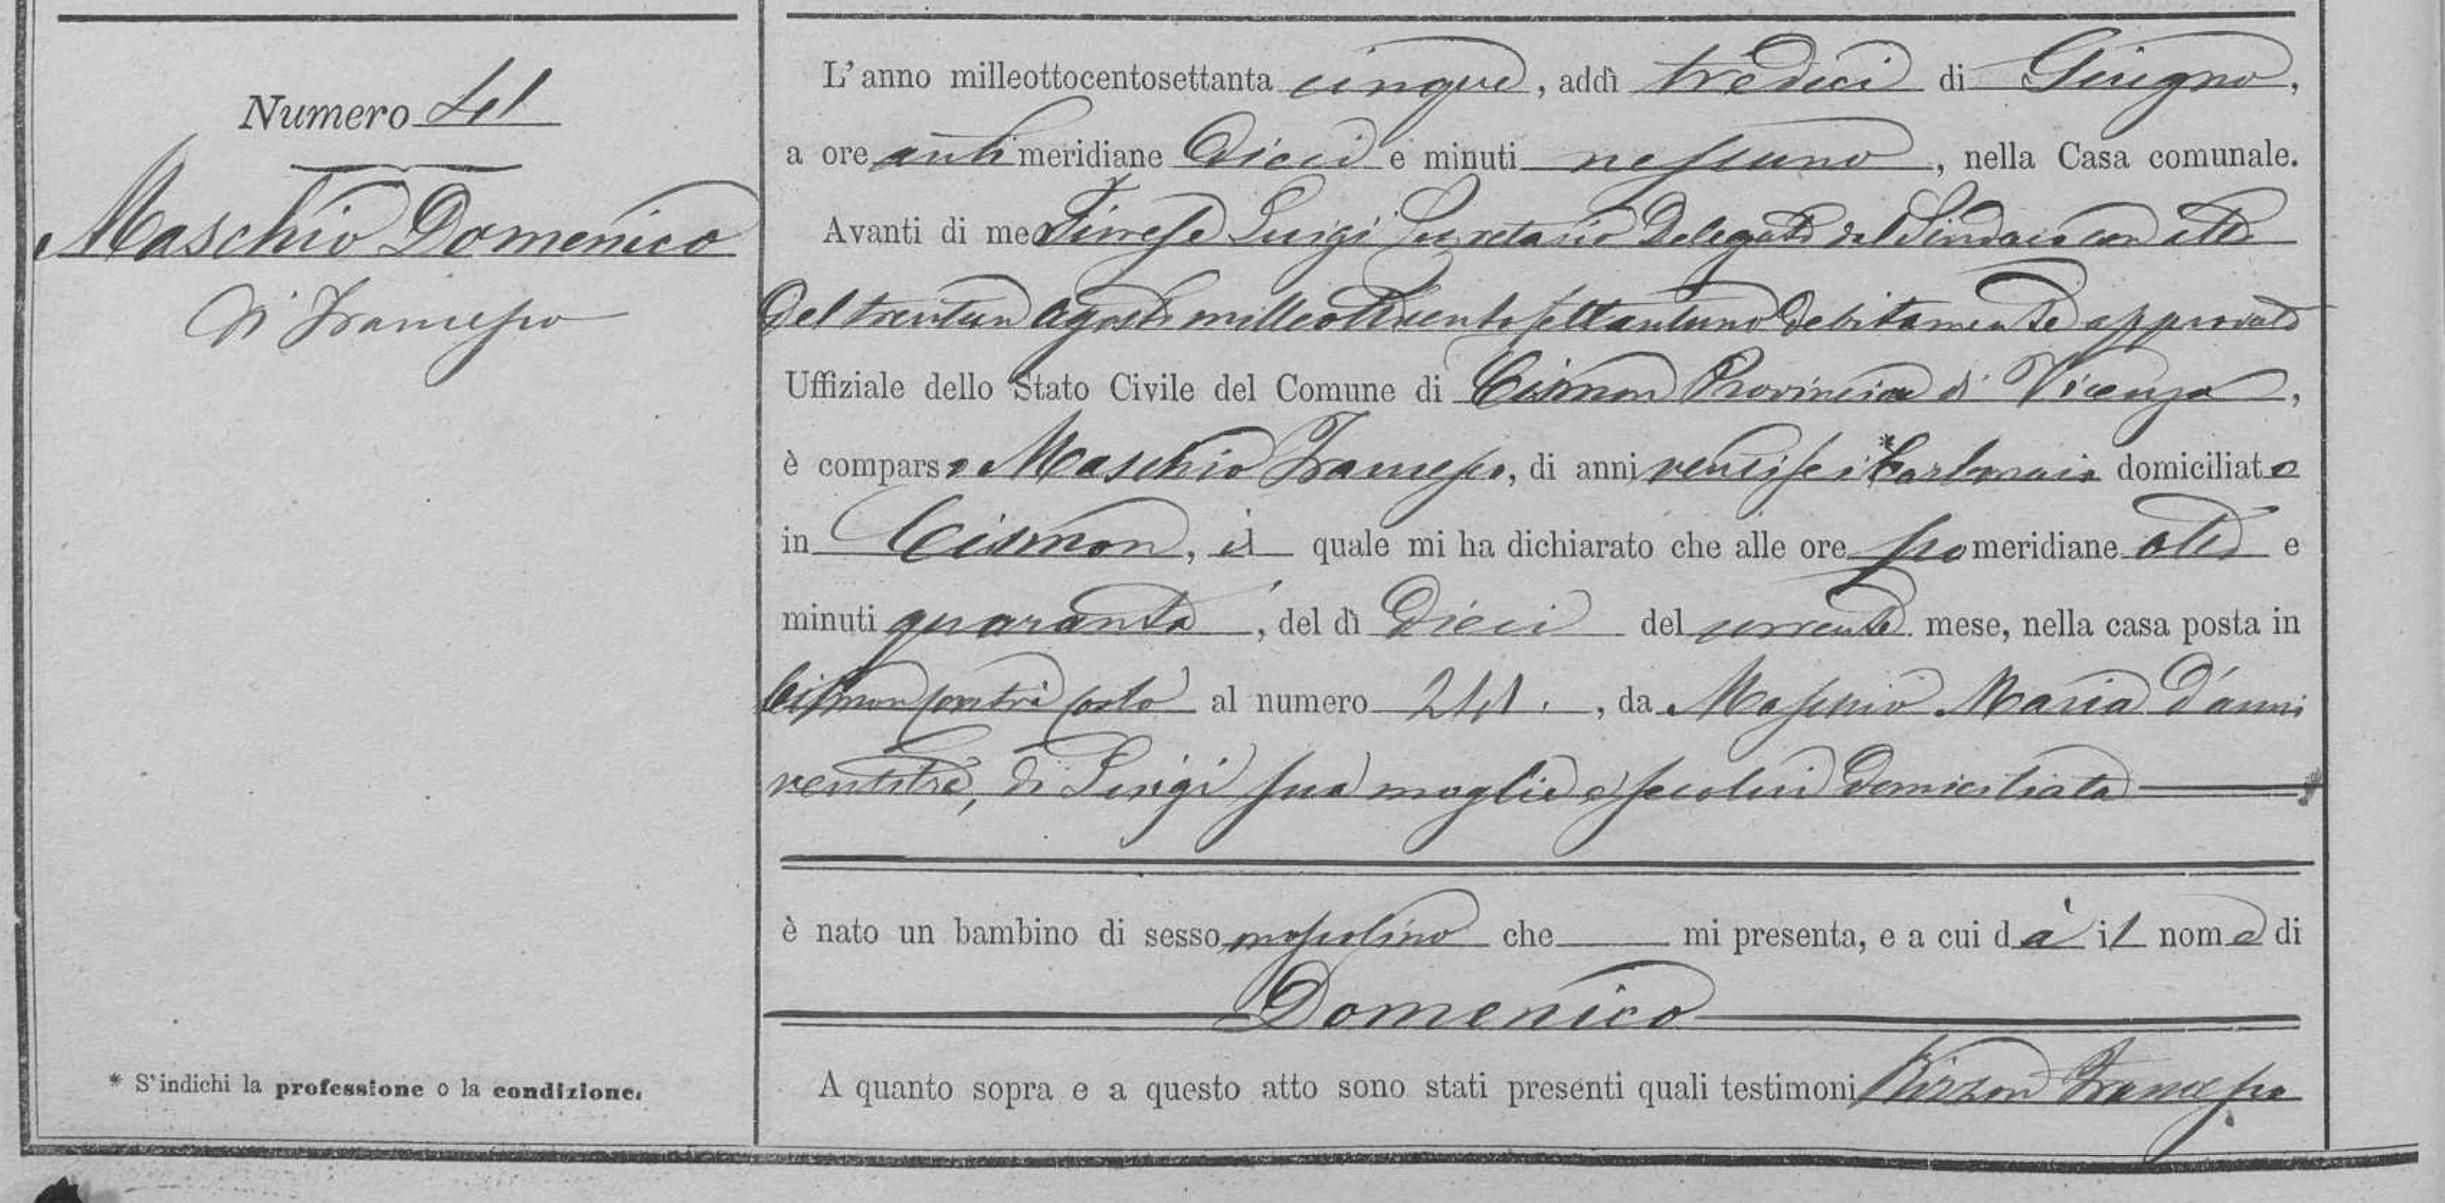 Numero 41
Maschio Domenico
di Francesco
* S'indichi la professione o la condizione.
L'anno milleottocentosettanta cinque, addì tredici di Giugno,
a ore anti meridiane dieci e minuti nessuno, nella Casa comunale.
Avanti di me Luigi Secretario Delegato dal Sindaco con atto
del trentun Agosto milleottocento settantuno debitamente approvato
Uffiziale dello Stato Civile del Comune di Cismon Provincia di Vicenza,
è comparso Maschio Francesco, di anni ventisei *Carbonaio domiciliato
in Cismon, il quale mi ha dichiarato che alle ore pomeridiane otto e
minuti quaranta, del dì dieci del corrente mese, nella casa posta in
Cismon al numero 241., da Maschio Maria d'anni
ventitrè, di Luigi sua moglie seco lui domiciliata
è nato un bambino di sesso mascolino che mi presenta, e a cui dà il nome di
Domenico
A quanto sopra e a questo atto sono stati presenti quali testimoni Rizzon Francesco